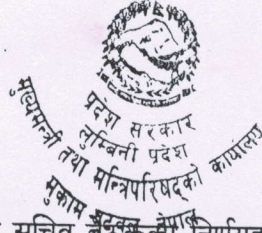 प्रदेश सरकार
लुम्बिनी प्रदेश
मुख्यमन्त्री तथा मन्त्रिपरिषद्को कार्यालय
मुकाम बुटवल, नेपाल
सचिव